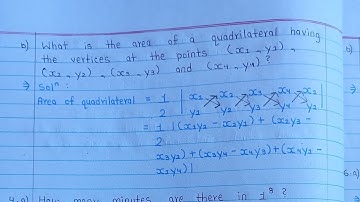 b) What is the area of a quadrilateral having
the vertices at the points (x1, y1),
(x2, y2), (x3, y3) and (x4, y4)?
⇒ Solⁿ:
Area of quadrilateral = 1/2 | x1 x2 x3 x4 x1 |
y1 y2 y3 y4 y1
= 1/2 |(x1y2 - x2y1) + (x2y3 -
x3y2) + (x3y4 - x4y3) + (x4y1 -
x1y4)|
4.a) How many minutes are there in 1ᵍ?
6.a)